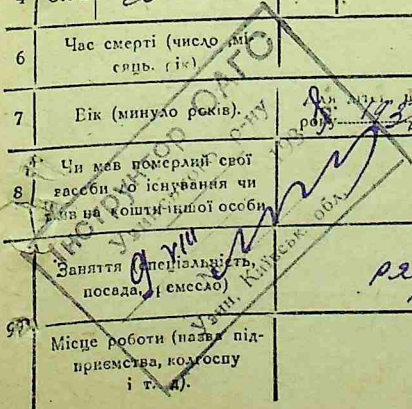 6 Час смерті (число, мі-
сяць, рік)
7 Вік (минуло років).
8 Чи мав померлий свої
засоби до існування чи
жив на кошти іншої особи
Заняття (спеціальність,
посада, ремесло)
Місце роботи (назва під-
приємства, колгоспу
і т. д).
Інструктор ОАГС
Узинського р-ну
193
9 VIII
Узин, Київськ. обл.